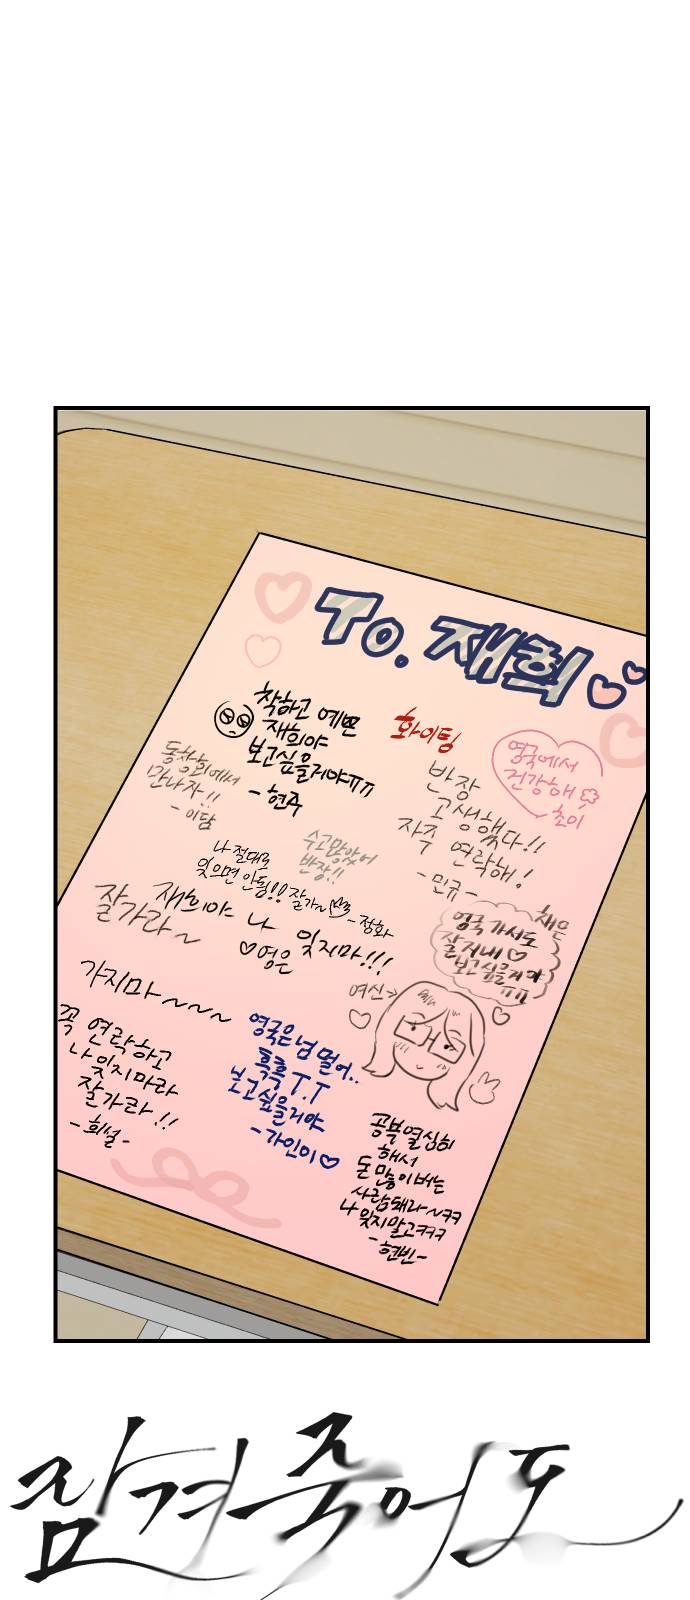 To. 재희
착하고 예쁜
재희야
보고싶을거야ㅠㅠ
- 현주
화이팅
영국에서
건강해
초이
동창회에서
만나자!!
- 이담
반장
고생했다!!
자주 연락해!
- 민규 -
수고많았어
반장!!
나 절대로
잊으면 안됨!! 잘가~
- 정화
재희야 나 잊지마!!!
♡영은
잘가라~
채은
영국 가서도
잘 지내♡
보고싶을거야
ㅠㅠ
여신
가지마~~~~
꼭 연락하고
나 잊지마라
잘가라!!
- 희설 -
영국은 넘 멀어..
흑흑 T.T
보고싶을거야
- 가인이♡
공부 열심히
해서
돈 많이 버는
사람 돼라~ㅋㅋ
나 잊지말고ㅋㅋㅋ
- 현빈 -
잠겨죽어도